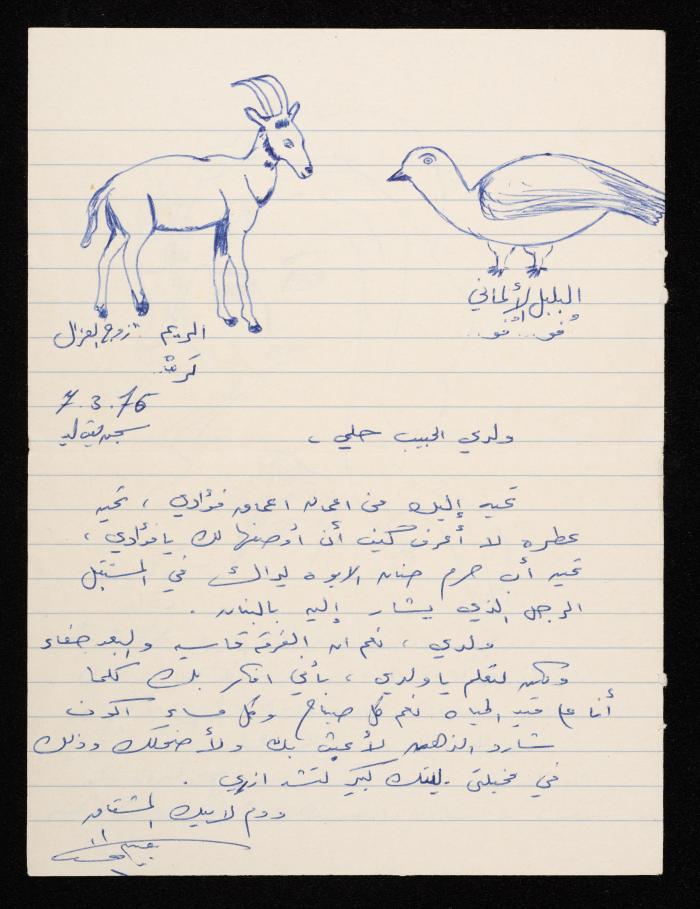 البلبل الألماني
فو.. فو..
الريم زوج الغزال
7.3.76
سجن بيت ليد
ولدي الحبيب حلمي ،
تحيه إليك من اعماق اعماق فؤادي ، تحيه
عطره لا أعرف كيف أن أوصفها لك يا فؤادي ،
تحيه أب حرم حنان الابوه ليراك في المستقبل
الرجل الذي يشار إليه بالبنان .
ولدي ، نعم ان الفرقه قاسيه والبعد جفاء
ولكن لتعلم يا ولدي ، بأني افكر بك كلما
أنا على قيد الحياه نعم كل صباح وكل مساء اكون
شارد الذهن لأعبث بك ولأضحكك وذلك
في مخيلتي . ليتك كبير لتشد ازري .
ودم لابيك المشتاق